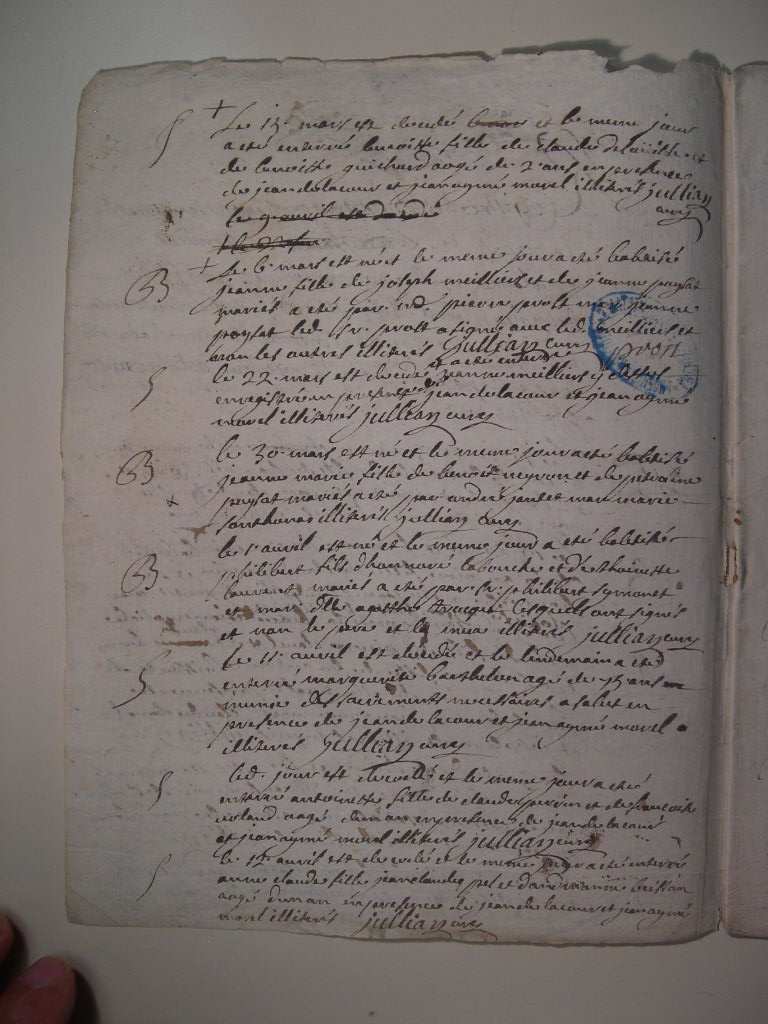 S + Le 15e mars est decedé et le meme jour
a eté enterré benoitte fille de claude
de benoitte guichard aagé de 2 ans en presence
de jean delacour et jean aymé morel illiterés jullian
curé
B + Le 6e mars est né et le meme jour a eté babtisé
jeanne fille de joseph meillier et de jeanne paysat
mariés a eté par. pierre prost mar. jeanne
paysat led. sr. prost a signé avec led. meillier et
non les autres illiterés jullian curé prost
S le 22 mars est decedé et a eté enterré jeanne meillier
enregistré en presence de jean delacour et jean aymé
morel illiterés jullian curé
B le 30 mars est né et le meme jour a eté babtisé
jeanne marie fille de benoit neyron et de
paysat mariés a eté par andré mar marie
illiterés jullian curé
B le 1er avril est né et le meme jour a eté babtisé
philibert fils d'honnoré labouche et de thoinette
laurent mariés a eté par sr. philibert symonet
et mar dlle agathe lesquels ont signés
et non le pere et la mere illiterés jullian curé
S Le 11e avril est decedé et le lendemain a eté
enterré marguerite barthelen agé de 15 ans
munie des sacrements necessaires a salut en
presence de jean delacour et jean aymé morel
illiterés jullian curé
S led. jour est decedé et le meme jour a eté
enterré antoinette fille de claude et de
roland aagé d'un an en presence de jean delacour
et jean aymé morel illiterés jullian curé
S le avril est decedé et le meme jour a eté enterré
anne claude fille jean claude et d'andreanne
aagé d'un an en presence de jean delacour et jean aymé
morel illiterés jullian curé